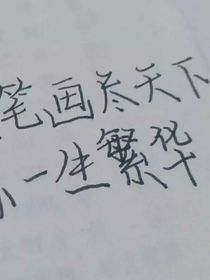 笔画尽天下
一生繁华